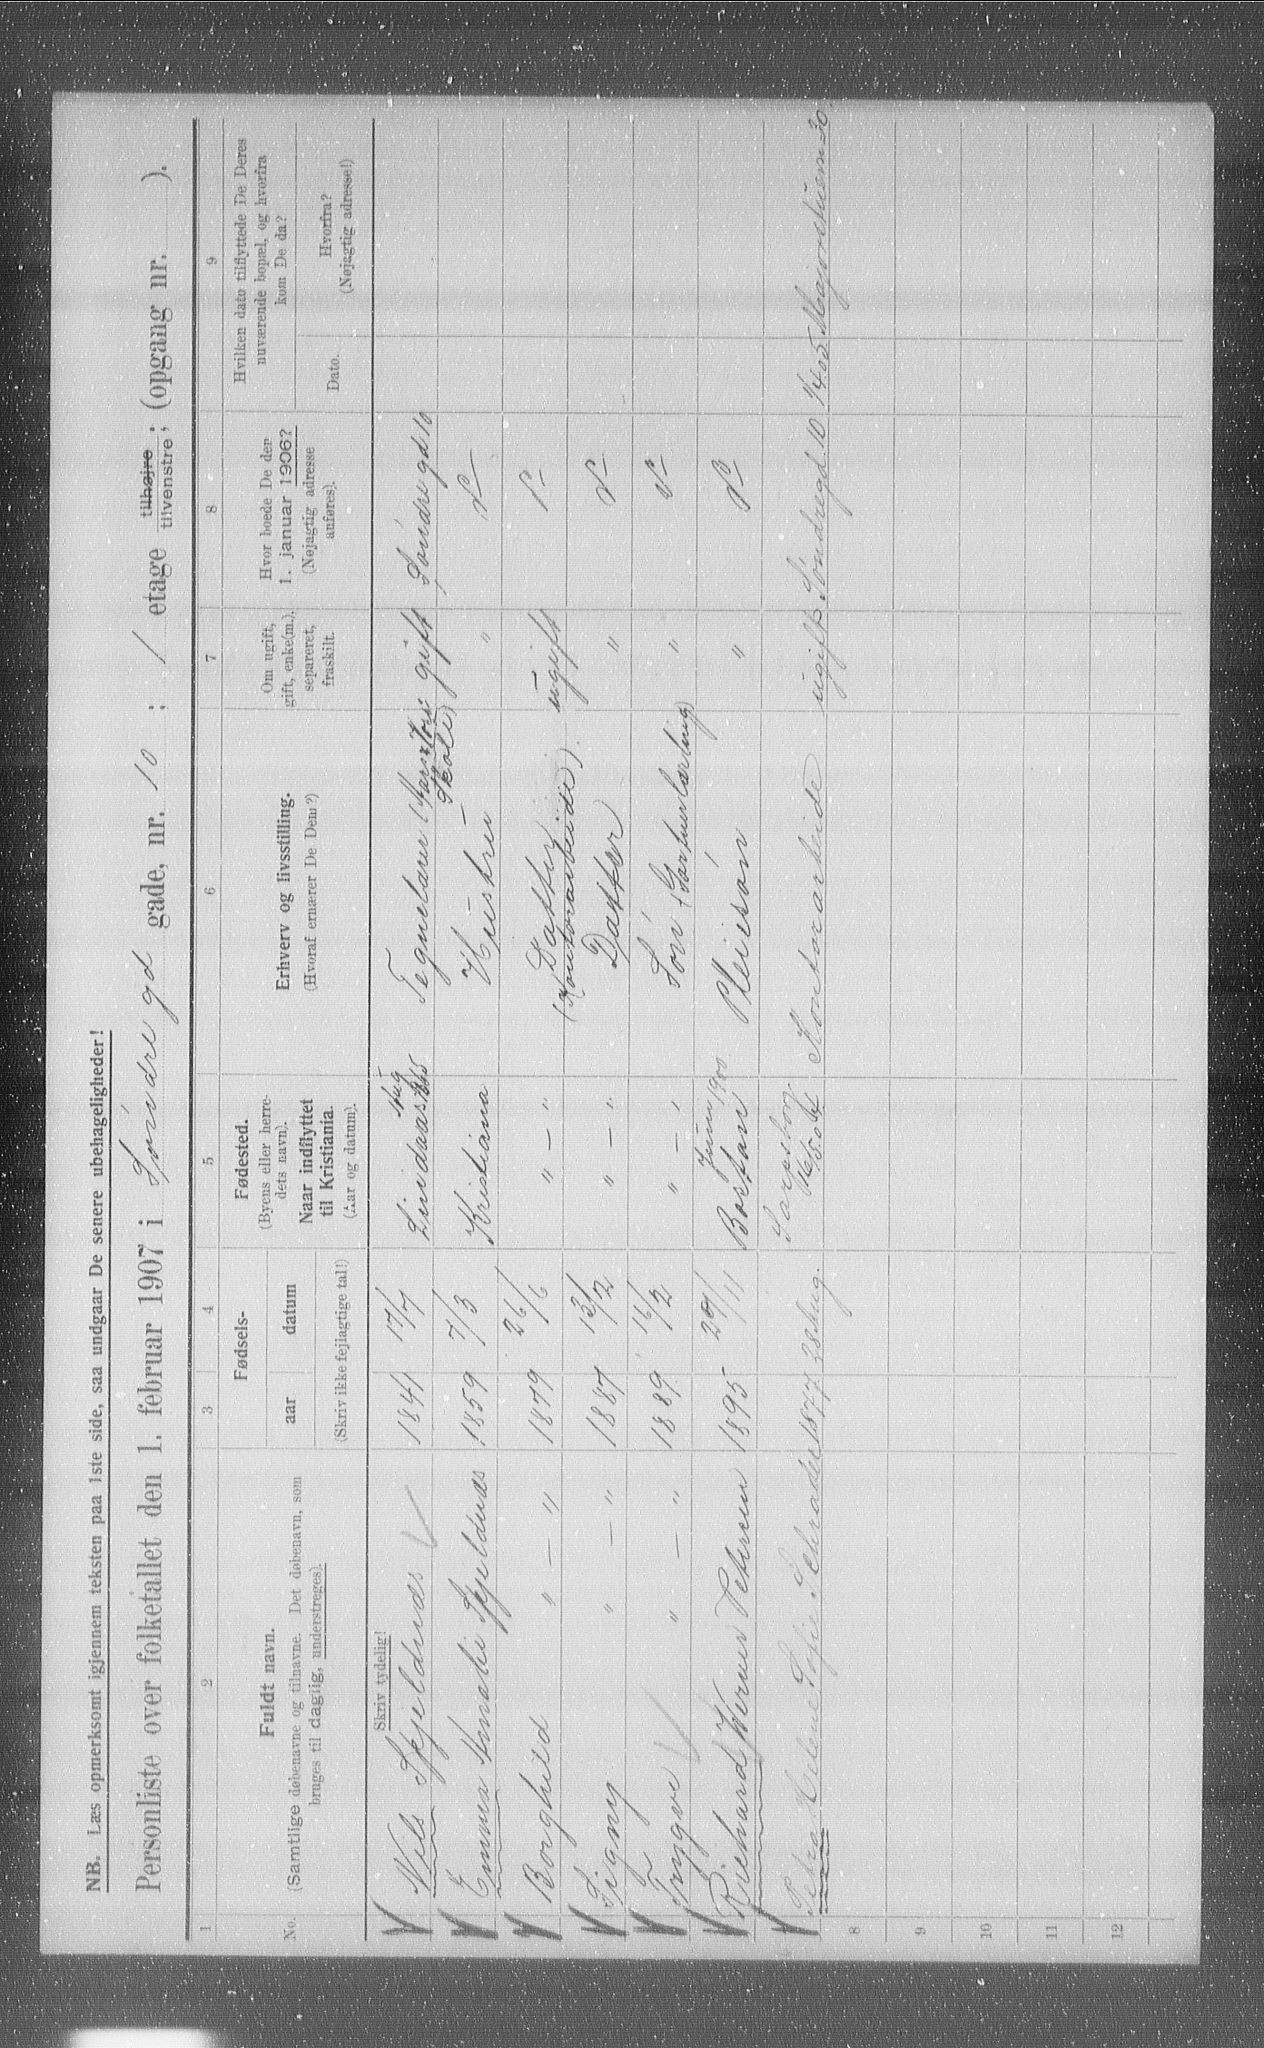 NB. Læs opmerksomt igjennem teksten paa 1ste side, saa undgaar De senere ubehageligheder!
Personliste over folketallet den 1. februar 1907 i Søndre gd gade, nr. 10 ; 1 etage tilhøjre : tilvenstre ; (opgang nr. ).
1 2 3 4 5 6 7 8 9
No.
Fuldt navn.
(Samtlige døbenavne og tilnavne. Det døbenavn, som
bruges til daglig, understreges).
Fødsels-
aar datum
(Skriv ikke fejlagtige tal!)
Fødested.
(Byens eller herre-
dets navn).
Naar indflyttet
til Kristiania.
(Aar og datum).
Erhverv og livsstilling.
(Hvoraf ernærer De Dem?)
Om ugift,
gift, enke(m.),
separeret,
fraskilt.
Hvor boede De den
1. januar 1906?
(Nøjagtig adresse
anføres).
Hvilken dato tilflyttede De Deres
nuværende bopæl, og hvorfra
kom De da?
Dato.
Hvorfra?
(Nøjagtig adresse!)
Skriv tydelig!
Nels Skjeldnæs 1841 17/7 Lindaas Aug 1865 Tegnelærer gift Søndre gd 10
Skole)
Emma Skjeldnæs 1859 7/3 Kristiana Hustru " "
Borghild " — " 1879 26/6 " — " Datter ugift
(Kontorarbeide)
Signy " — " 1887 13/2 " — " Datter "
Trygve " — " 1889 16/2 " — " Søn "
Richard Petersen 1895 29/11 Boston Juni 1900 Pleiesøn "
Petra Helene Sofie Schrader 1877 28 Aug. Sarpsborg Kontorarbeide ugift Søndregd. 10 Majorstuen 30.
8
9
10
11
12